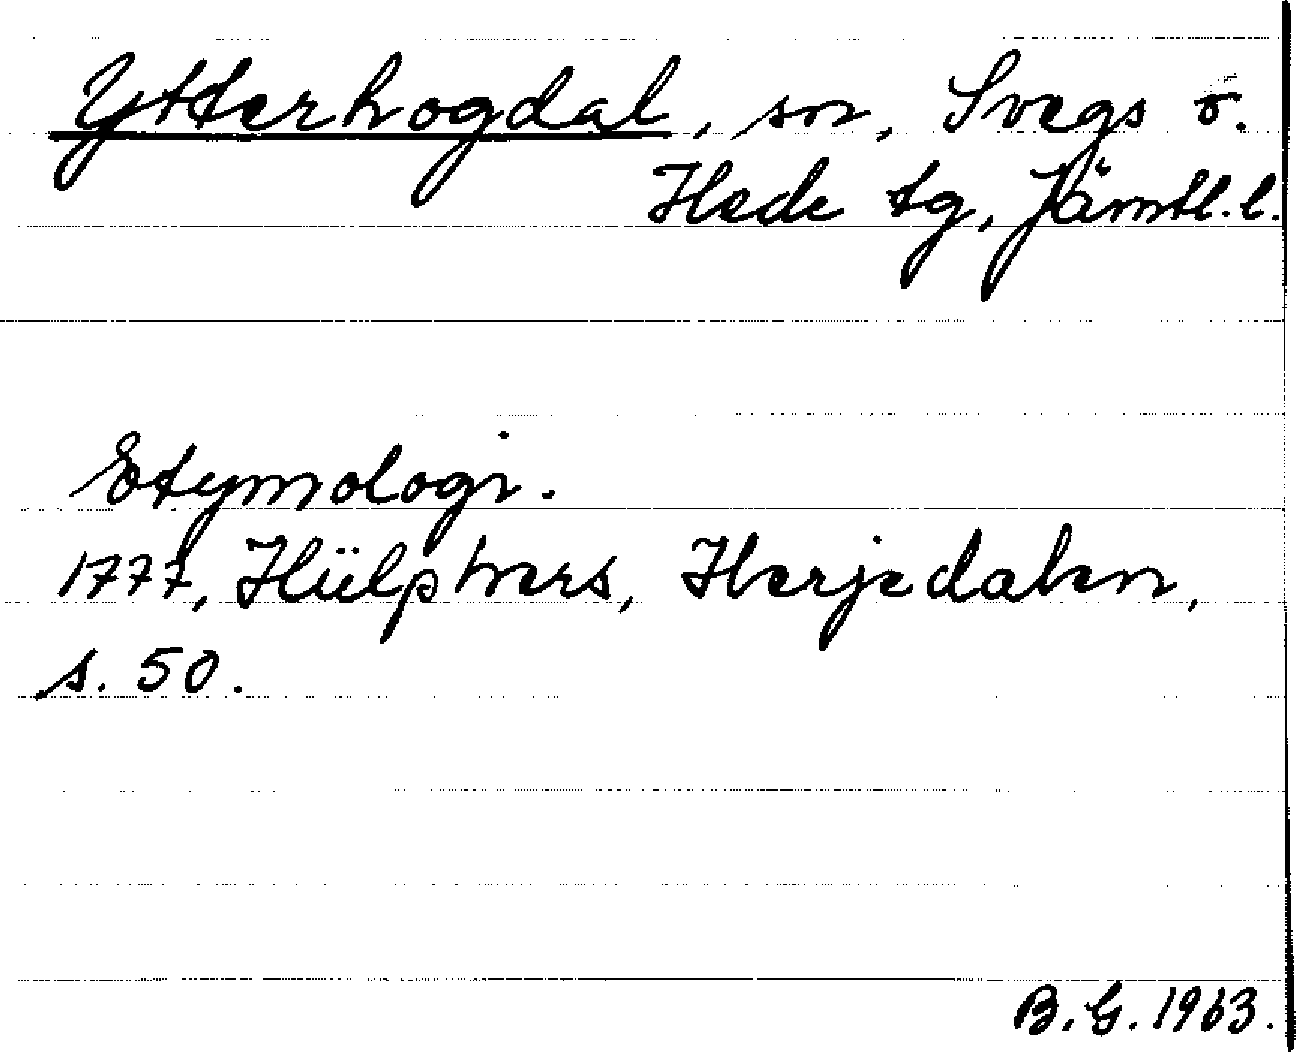 Ytterhogdal, sn, Svegs o.
Hede tg, Jämtl. l.
Etymologi.
1777, Hülphers, Herjedalen,
s. 50.
B. G. 1963.